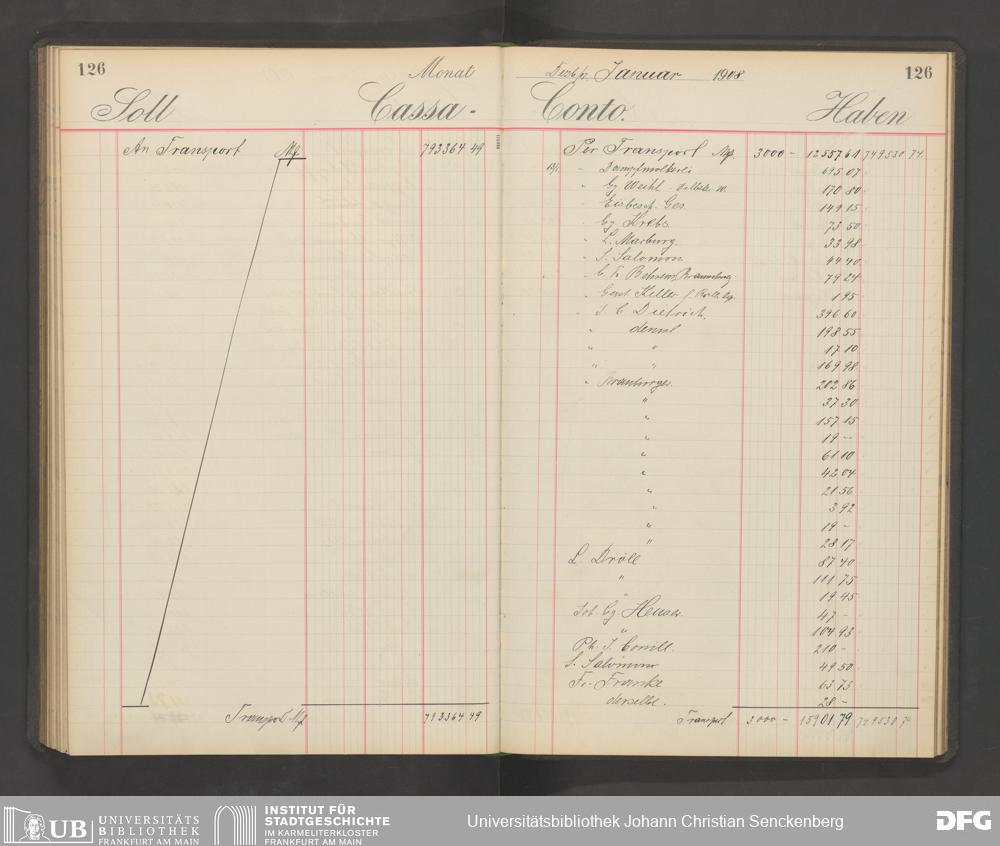 126
Monat
Januar 1908
126
Soll
Cassa-
Conto.
Haben
An Transport M 793364 49
Per Transport M 3000 - 12557.61 749530.74
Dampfmolkerei 695 07
Gg Weihl 170 80
Eisbesch. Ges. 149 15
Gg Krebs 73 50
L. Marburg 33 98
S. Salomon 44 40
79 24
Keller 1 95
J. C. Dietrich 396 60
densel 198 55
" " 17 10
" " 169 98
202 86
" 37 30
" 157 15
" 19 -
" 61 10
" 42 04
" 21 56
" 3 92
" 19 -
" 28 17
L. Dröll 87 40
" 111 75
" 19 45
Joh. Gg. Heuser 47 -
" 104 93
Ph. J. Conill. 210 -
S. Salomon 49 50
Fr. Franke 63 73
derselbe. 28 -
Transport M 793364 49
Transport 3000 - 15901 79 749530 74
UB UNIVERSITÄTS
BIBLIOTHEK
FRANKFURT AM MAIN
INSTITUT FÜR
STADTGESCHICHTE
IM KARMELITERKLOSTER
FRANKFURT AM MAIN
Universitätsbibliothek Johann Christian Senckenberg
DFG